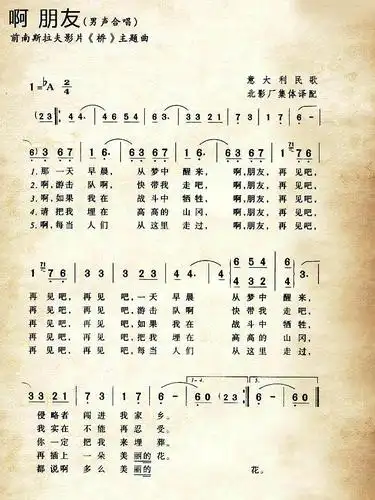 啊 朋友(男声合唱)
前南斯拉夫影片《桥》主题曲
1=♭A 2/4
意大利民歌
北影厂集体译配
1.那一天 早晨, 从梦中 醒来, 啊,朋友, 再见吧,
2.啊,游击 队啊, 快带我 走吧, 啊,朋友, 再见吧,
3.啊,如果 我在 战斗中 牺牲, 啊,朋友, 再见吧,
4.请把我 埋在 高高的 山冈, 啊,朋友, 再见吧,
5.啊,每当 人们 从这里 走过, 啊,朋友, 再见吧,
再见吧, 再见 吧,一天 早晨 从梦中 醒来,
再见吧, 再见 吧,游击 队啊 快带我 走吧,
再见吧, 再见 吧,如果 我在 战斗中 牺牲,
再见吧, 再见 吧,把我 埋在 高高的 山冈,
再见吧, 再见 吧,每当 人们 从这里 走过,
3 33 2 1 2 1 7 3 7 1 6· 6 0 (23) 6· 6 0
侵略者 闯进 我家 乡。
我实在 不能 再忍 受。
你一定 把我 来埋 葬。
再插上 一朵 美丽的 花。
都说啊 多么 美丽的 花。